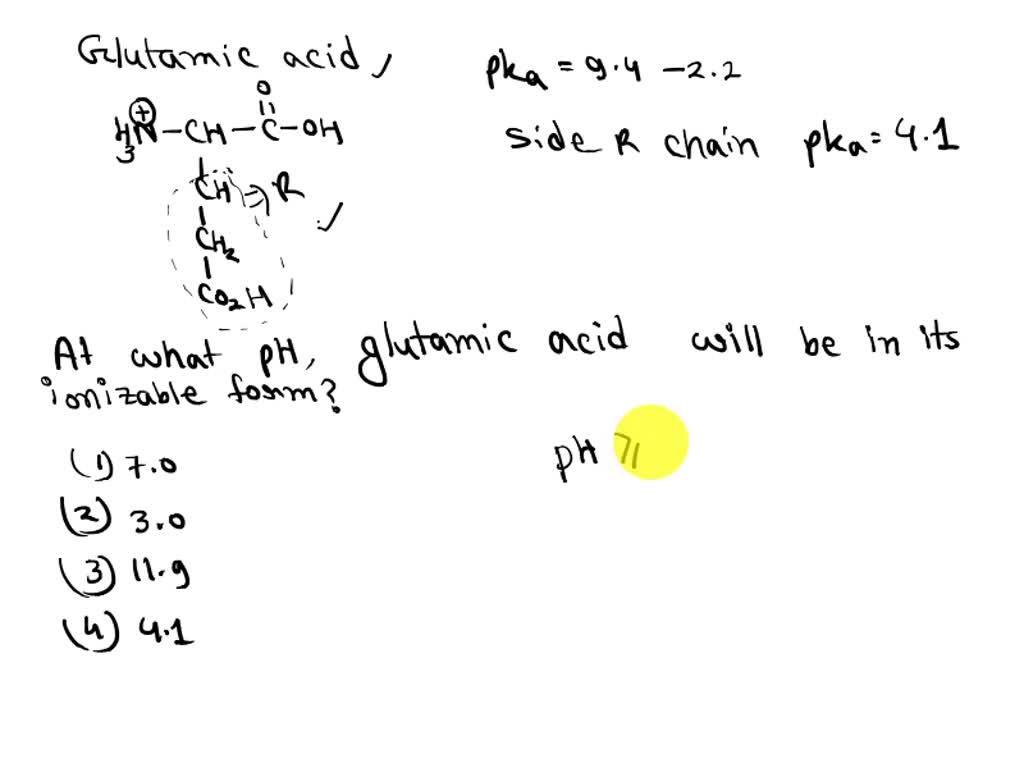 Glutamic acid,
pka = 9.4 - 2.2
O
H3N⊕-CH-C-OH
Side R chain pka = 4.1
CH ⇒ R
CH2
CO2H
At what pH, glutamic acid will be in its
ionizable form?
(1) 7.0
pH 7
(2) 3.0
(3) 11.9
(4) 4.1